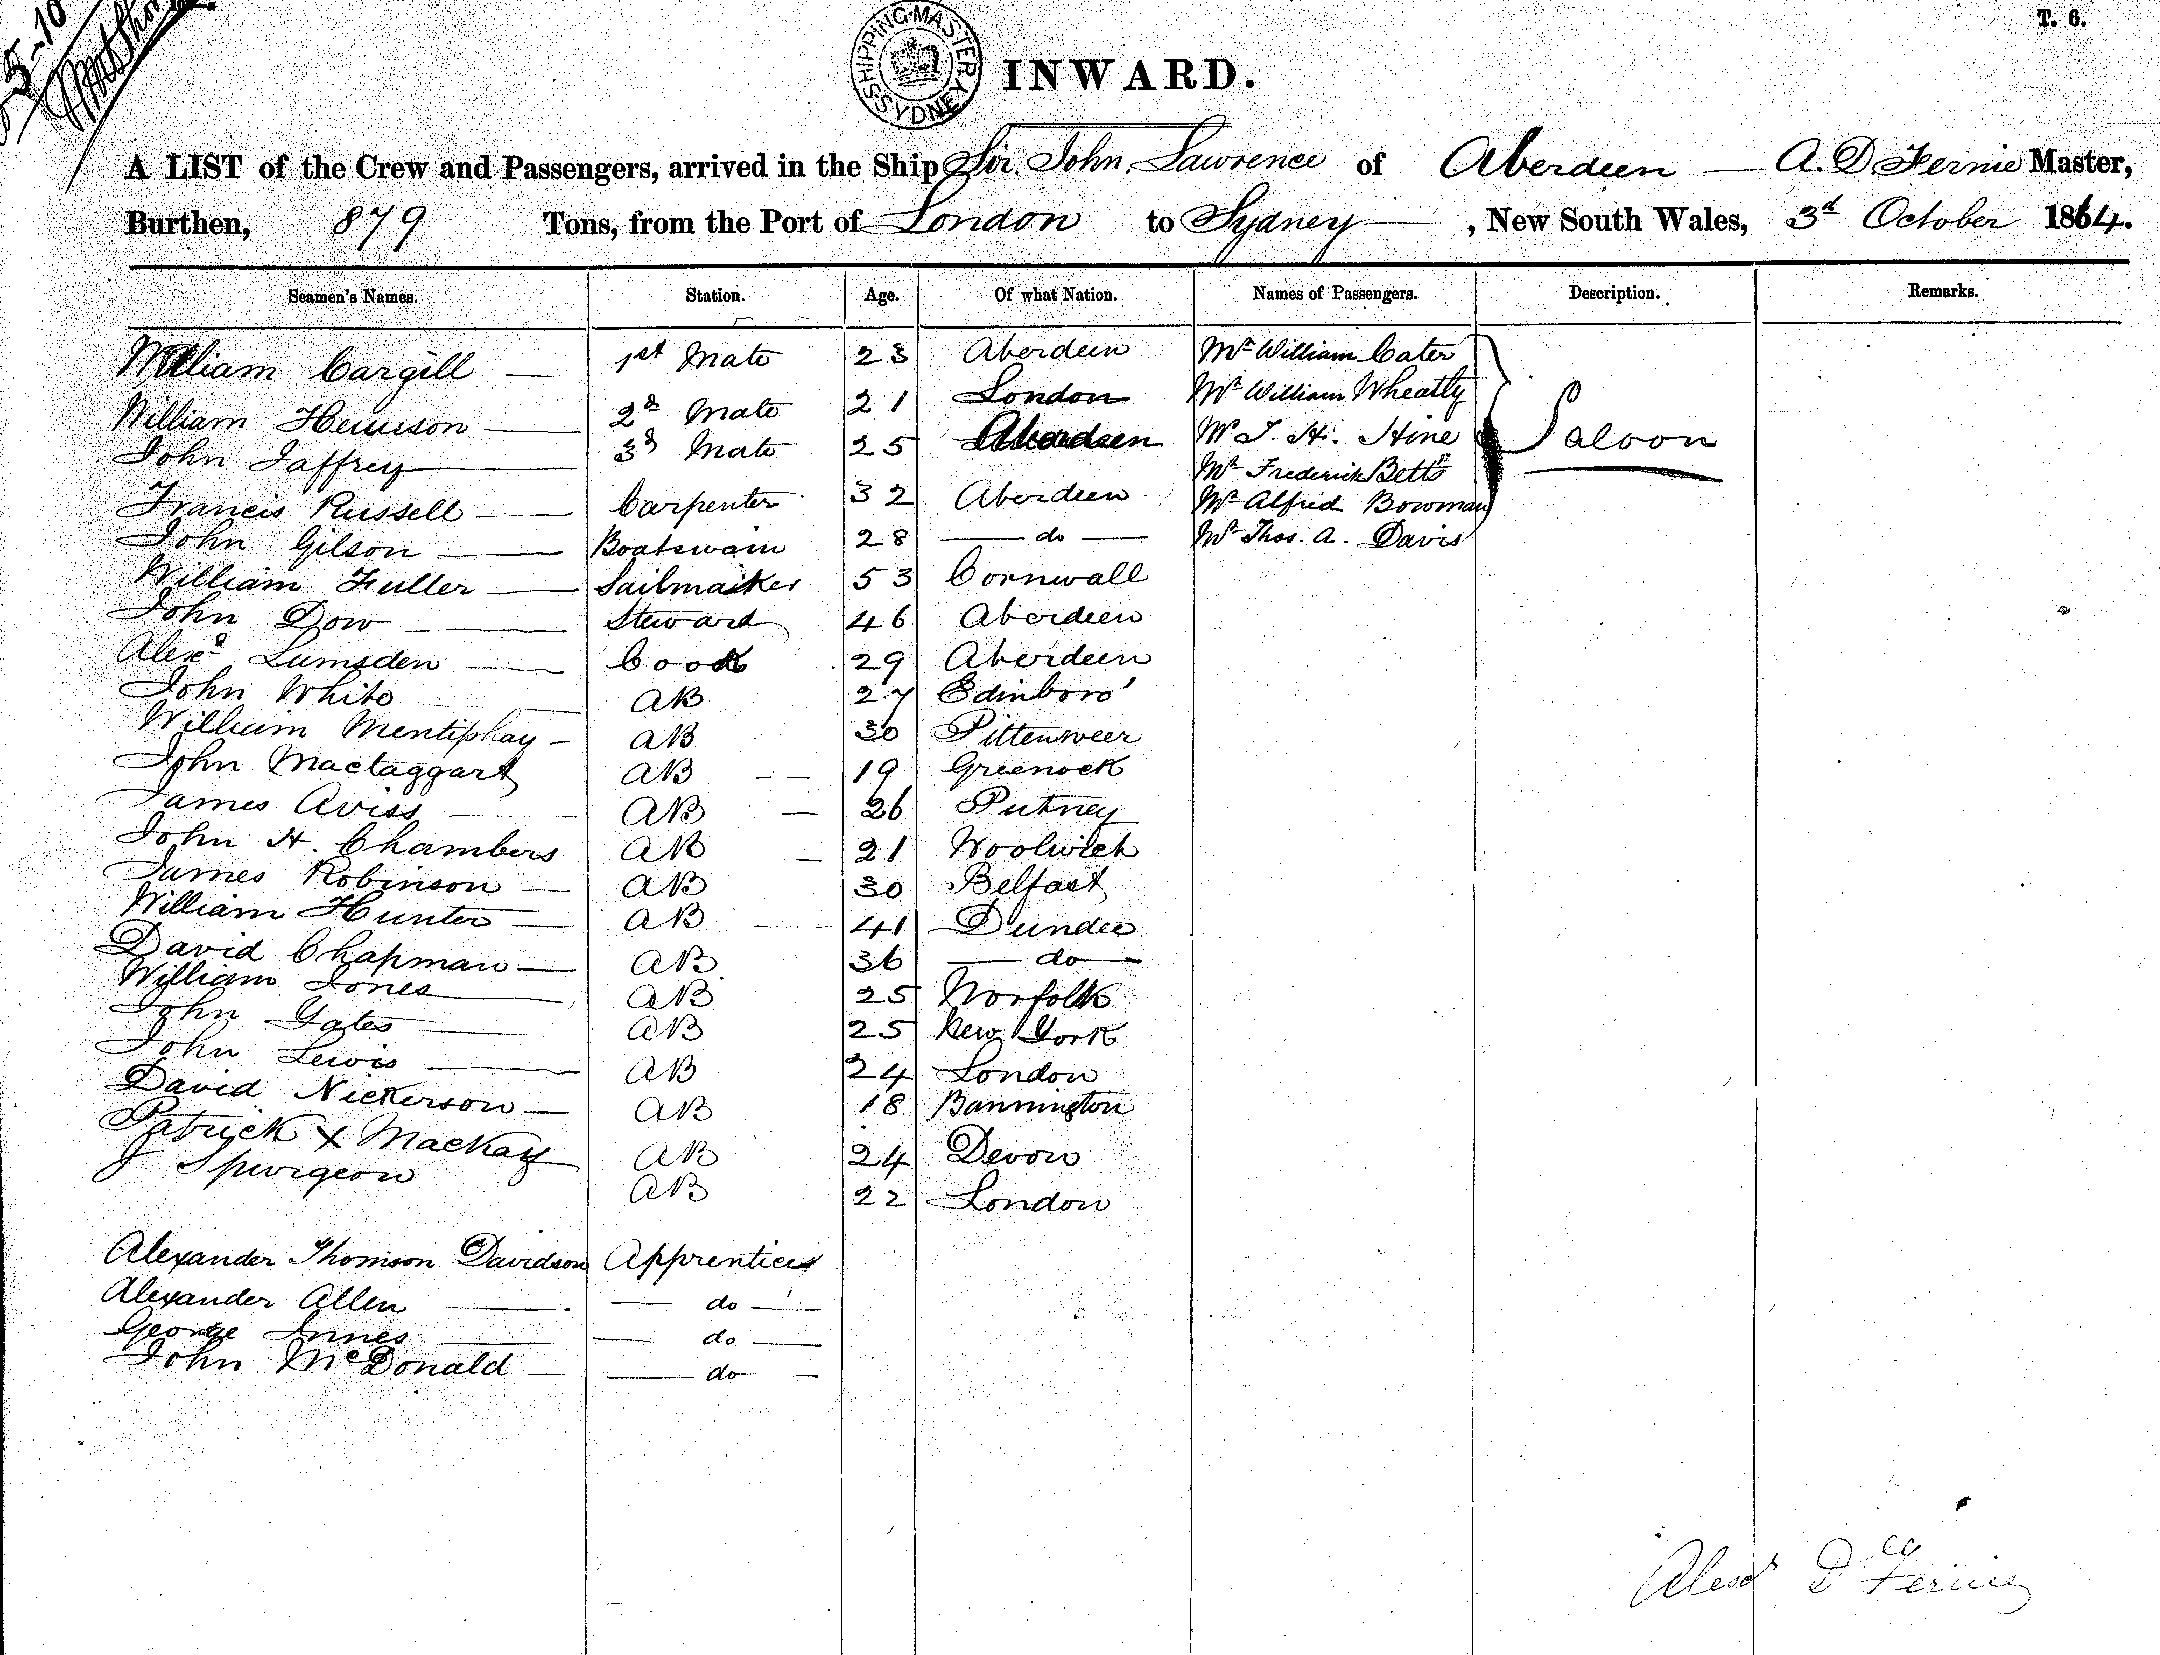 5-10
SHIPPING MASTER SYDNEY
T. 6.
INWARD.
A LIST of the Crew and Passengers, arrived in the Ship Sir John Lawrence of Aberdeen — A. D Fernie Master,
Burthen, 879 Tons, from the Port of London to Sydney — , New South Wales, 3d October 1864.
Seamen's Names. Station. Age. Of what Nation. Names of Passengers. Description. Remarks.
William Cargill — 1st Mate 23 Aberdeen Mr William Cater
William Hewison — 2d Mate 21 London Mr William Wheatly
John Jaffrey — 3d Mate 25 Aberdeen Mr J. H. Hine Saloon
Mr Frederick Betts
Francis Russell — Carpenter 32 Aberdeen Mr Alfred Bowman
John Gilson — Boatswain 28 — do — Mr Thos. A. Davis
William Fuller — Sailmaiker 53 Cornwall
John Dow — Steward 46 Aberdeen
Alexr Lumsden — Cook 29 Aberdeen
John White AB 27 Edinboro'
William Mentiphay — AB 30 Pittenweer
John Mactaggart AB — — 19 Greenock
James Aviss — AB — 26 Putney
John H. Chambers AB — 21 Woolwich
James Robinson — AB 30 Belfast
William Hunter — AB 41 Dundee
David Chapman — AB 36 — do —
William Jones — AB 25 Norfolk
John Yates — AB 25 New York
John Lewis — AB 24 London
David Nickerson — AB 18 Bannington
Patrick X Mackay AB 24 Devon
J Spurgeon AB 22 London
Alexander Thomson Davidson Apprentices
Alexander Allen — do —
George Innes — do —
John McDonald — do —
Alexr D Fernie